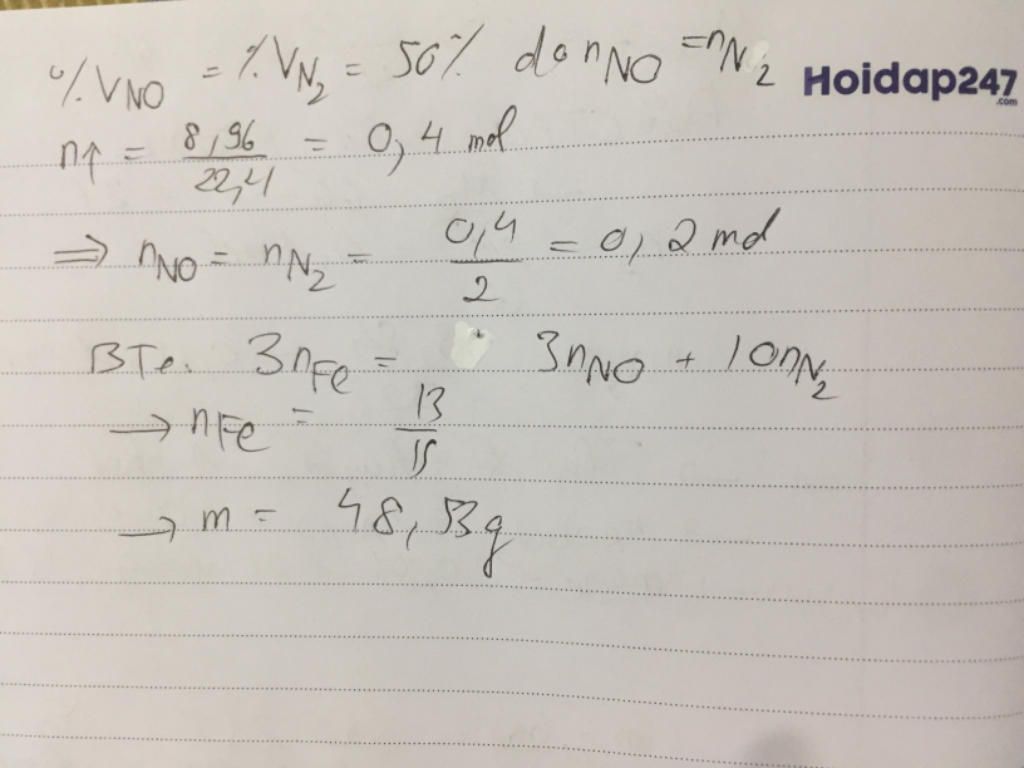 %V_NO = %V_N₂ = 50% do n_NO = n_N₂
Hoidap247
.com
n↑ = 8,96/22,4 = 0,4 mol
⇒ n_NO = n_N₂ = 0,4/2 = 0,2 mol
BTe. 3n_Fe = 3n_NO + 10n_N₂
→ n_Fe = 13/15
→ m = 48,53g